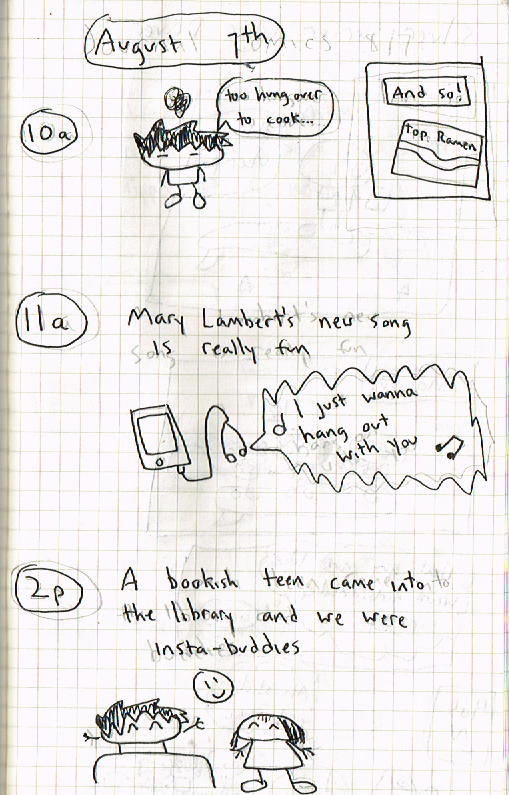 August 7th
10a
too hung over
to cook...
And so!
Top Ramen
11a
Mary Lambert's new song
is really fun
I just wanna
hang out
with you
2p
A bookish teen came into
the library and we were
insta-buddies